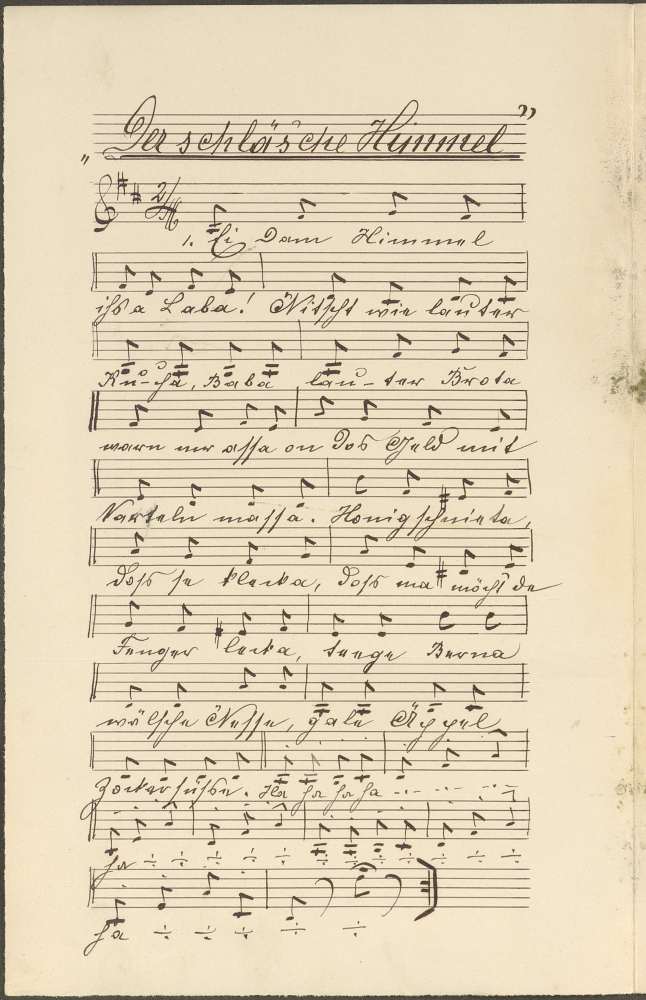 „Der schläsche Himmel"
2/4
1. Ei Dam Himmel
ihs a Laba! Nitscht wie lauter
Kû-cha, Baba lau-ter Brota
warn mr assa on dos Geld mit
Varteln massa. Honigschnieta,
doss se klecka, doss ma möcht de
Fenger lecka, teege Berna
wälsche Nesse, gale Äppel
Zockersüsse. Ha ha ha ha
ha ÷ ÷ ÷ ÷ ÷ ÷ ÷ ÷ ÷ ÷ ÷
ha ÷ ÷ ÷ ÷ ÷